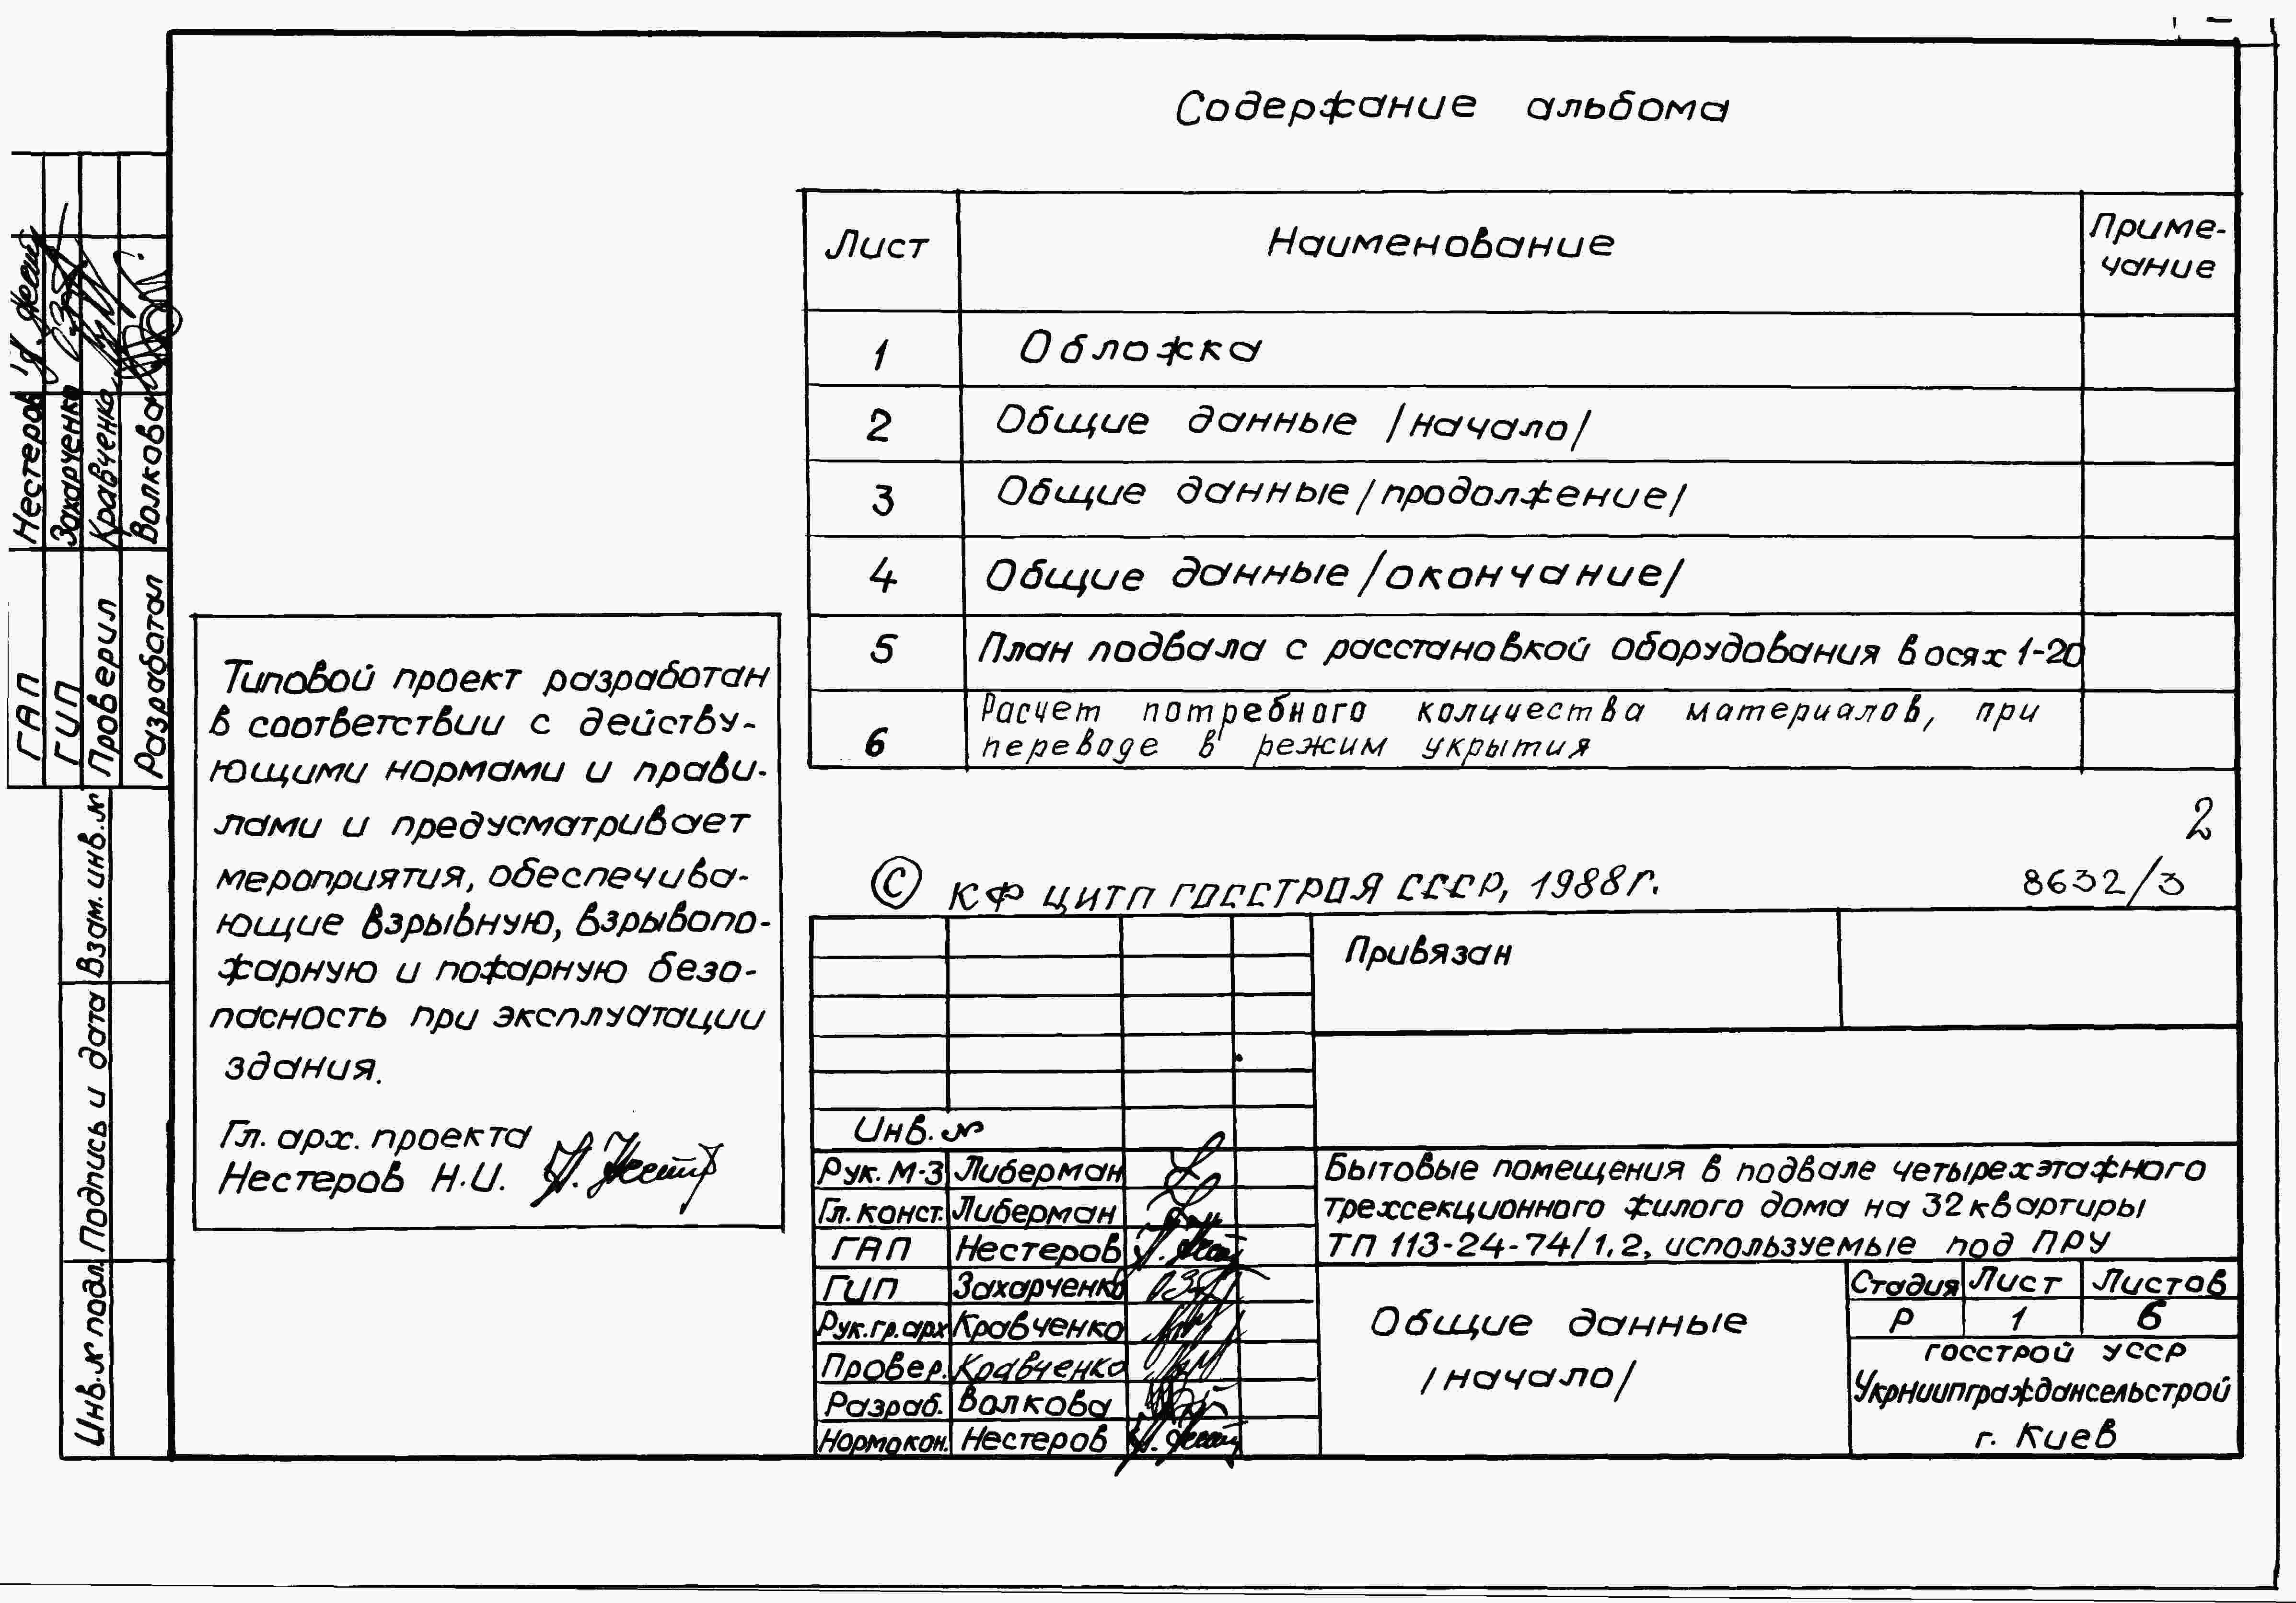 Содержание альбома
Лист Наименование Приме-
чание
1 Обложка
2 Общие данные /начало/
3 Общие данные /продолжение/
4 Общие данные /окончание/
5 План подвала с расстановкой оборудования в осях 1-20
6 Расчет потребного количества материалов, при
переводе в режим укрытия
2
8632/3
© КФ ЦИТП ГОССТРОЯ СССР, 1988г.
Типовой проект разработан
в соответствии с действу-
ющими нормами и прави-
лами и предусматривает
мероприятия, обеспечива-
ющие взрывную, взрывопо-
жарную и пожарную безо-
пасность при эксплуатации
здания.
Гл. арх. проекта
Нестеров Н.И.
ГАП Нестеров
ГИП Захарченко
Проверил Кравченко
Разработал Волкова
Взам. инв. №
Подпись и дата
Инв. № подл.
Привязан
Инв. №
Рук. М-3 Либерман
Гл. конст. Либерман
ГАП Нестеров
ГИП Захарченко
Рук.гр.арх Кравченко
Провер. Кравченко
Разраб. Волкова
Нормокон. Нестеров
Бытовые помещения в подвале четырехэтажного
трехсекционного жилого дома на 32 квартиры
ТП 113-24-74/1.2, используемые под ПРУ
Общие данные
/начало/
Стадия Лист Листов
Р 1 6
ГОССТРОЙ УССР
Укрниипграждансельстрой
г. Киев